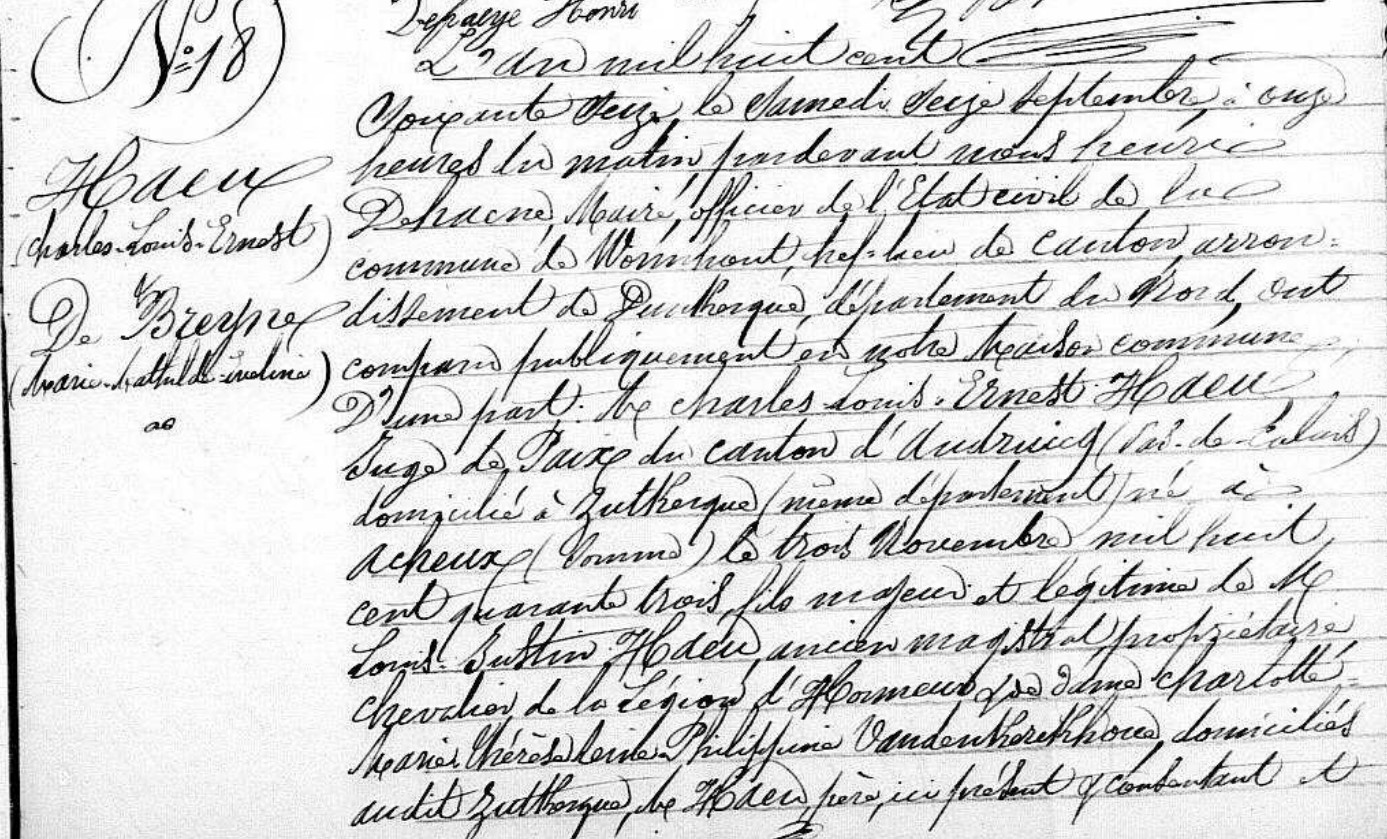 Nº 18
Dehaene Henri
L'an mil huit cent
Soixante Seize, le Samedi Seize Septembre, à onze
heures du matin, pardevant nous henri
Dehaene, Maire, officier de l'Etat civil de la
commune de Wormhout, chef-lieu de canton, arron=
dissement de Dunkerque, département du Nord, ont
comparu publiquement en notre Maison commune,
D'une part: Mr charles-Louis-Ernest Haeu
Juge de Paix du canton d'Audruicq (Pas-de-Calais)
domicilié à Zutkerque (même département) né à
Acheux (Somme) le trois Novembre mil huit
cent quarante trois, fils majeur et légitime de Mr
Louis-Justin Haeu, ancien magistrat, propriétaire,
chevalier de la Légion d'Honneur & de dame charlotte-
Marie Thérèse Philippine Vandenkerckhove, domiciliés
audit Zutkerque, Mr Haeu, père, ici présent & consentant et
Haeu
(charles-Louis-Ernest)
&
De Breyne
(Marie-Mathilde-)